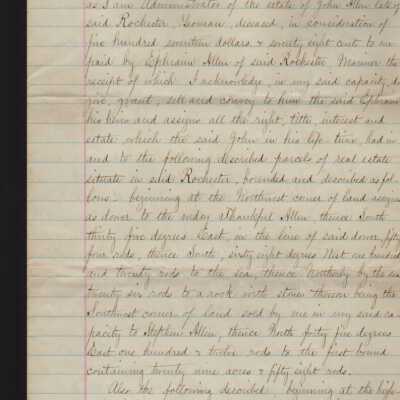 as I am Administrator of the estate of John Allen late of
said Rochester, Yeoman, deceased, in consideration of
five hundred seventeen dollars & seventy eight cents to me
paid by Ephraim Allen of said Rochester, Mariner the
receipt of which I acknowledge, in my said capacity do
give, grant, sell and convey to him the said Ephraim
his heirs and assigns all the right, title, interest and
estate which the said John in his life-time, had in
and to the following described parcels of real estate
situate in said Rochester, bounded and described as fol-
lows:- beginning at the Northwest corner of land assign
as dower to the widow Thankful Allen, thence South
thirty five degrees East, in the line of said dower, fifty
four rods, thence South, sixty eight degrees West one hundred
and twenty rods to the sea, thence Northerly by the sea
twenty six rods to a rock with stones thereon being the
Southwest corner of land sold by me in my said ca-
pacity to Stephen Allen, thence North forty five degrees
East one hundred & twelve rods to the first bound
containing twenty nine acres & fifty eight rods.
Also the following described, beginning at the